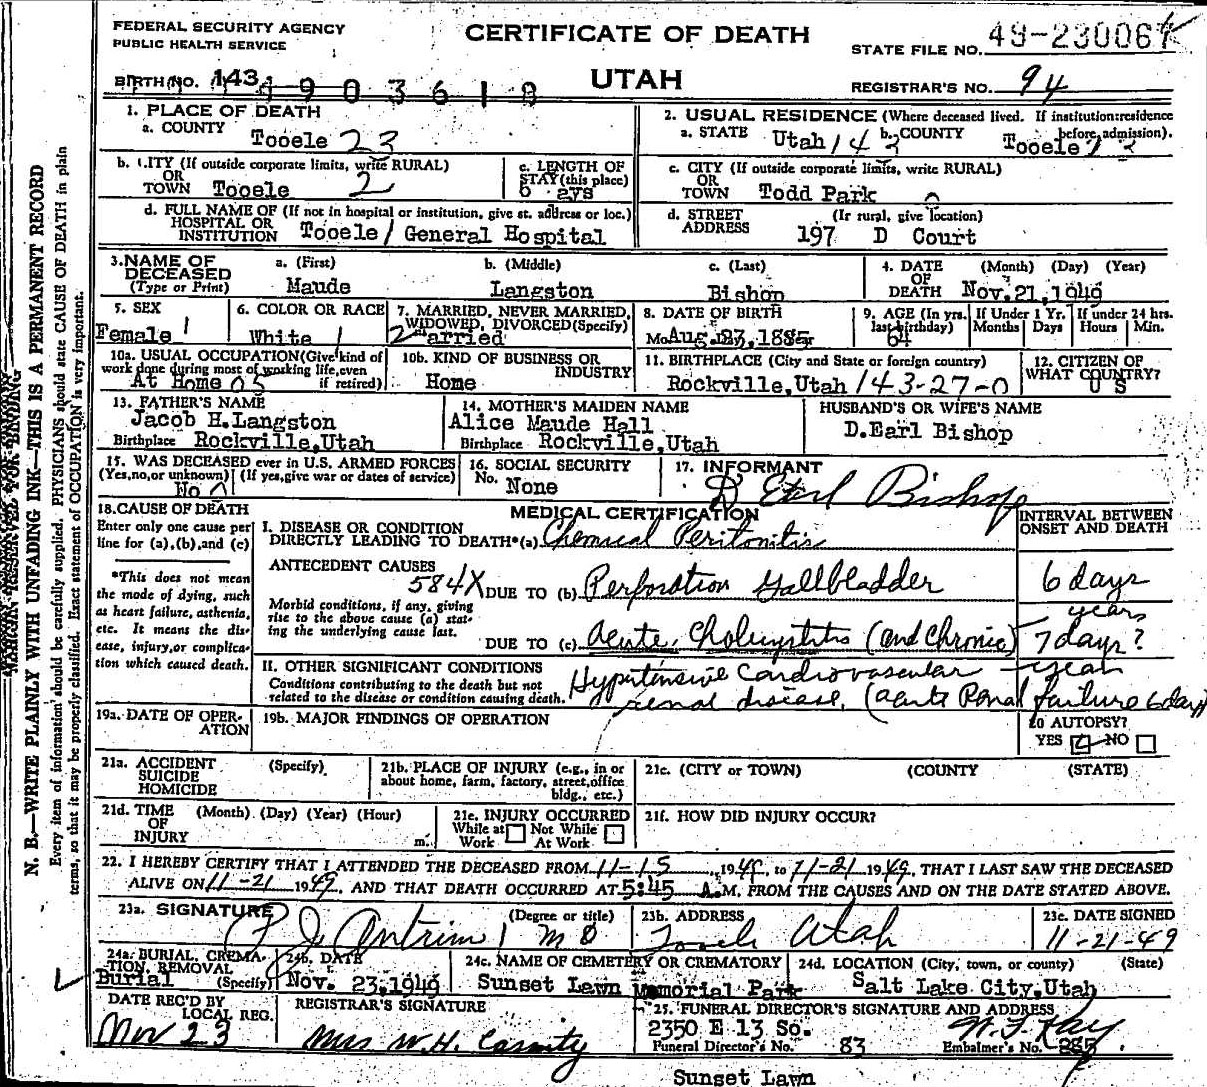 FEDERAL SECURITY AGENCY
PUBLIC HEALTH SERVICE
CERTIFICATE OF DEATH
UTAH
STATE FILE NO. 49-230067
BIRTH NO. 143
4903618
REGISTRAR'S NO. 94
1. PLACE OF DEATH
a. COUNTY Tooele 23
2. USUAL RESIDENCE (Where deceased lived. If institution: residence before admission).
a. STATE Utah 143 b. COUNTY Tooele
b. CITY (If outside corporate limits, write RURAL) OR TOWN Tooele 2
c. LENGTH OF STAY (this place) 6 ays
c. CITY (If outside corporate limits, write RURAL) OR TOWN Todd Park
d. FULL NAME OF (If not in hospital or institution, give st. address or loc.) HOSPITAL OR INSTITUTION Tooele General Hospital
d. STREET ADDRESS (If rural, give location) 197 D Court
3. NAME OF DECEASED (Type or Print)
a. (First) Maude
b. (Middle) Langston
c. (Last) Bishop
4. DATE OF DEATH (Month) (Day) (Year) Nov. 21, 1949
5. SEX Female 1
6. COLOR OR RACE White 1
7. MARRIED, NEVER MARRIED, WIDOWED, DIVORCED (Specify) 2 arried
8. DATE OF BIRTH Aug. 23, 1885
9. AGE (In yrs. last birthday) 64
If Under 1 Yr. Months Days
If under 24 hrs. Hours Min.
10a. USUAL OCCUPATION (Give kind of work done during most of working life, even if retired) At Home 05
10b. KIND OF BUSINESS OR INDUSTRY Home
11. BIRTHPLACE (City and State or foreign country) Rockville, Utah 143-27-0
12. CITIZEN OF WHAT COUNTRY? U S
13. FATHER'S NAME Jacob H. Langston
Birthplace Rockville, Utah
14. MOTHER'S MAIDEN NAME Alice Maude Hall
Birthplace Rockville, Utah
HUSBAND'S OR WIFE'S NAME
D. Earl Bishop
15. WAS DECEASED ever in U.S. ARMED FORCES (Yes, no, or unknown) (If yes, give war or dates of service) No 0
16. SOCIAL SECURITY No. None
17. INFORMANT D Earl Bishop
18. CAUSE OF DEATH
Enter only one cause per line for (a), (b), and (c)
MEDICAL CERTIFICATION
INTERVAL BETWEEN ONSET AND DEATH
I. DISEASE OR CONDITION DIRECTLY LEADING TO DEATH* (a) Chemical Peritonitis
*This does not mean the mode of dying, such as heart failure, asthenia, etc. It means the disease, injury, or complication which caused death.
ANTECEDENT CAUSES
584X DUE TO (b) Perforation Gallbladder 6 days
Morbid conditions, if any, giving rise to the above cause (a) stating the underlying cause last.
years
DUE TO (c) Acute Cholecystitis (and Chronic) 7 days?
II. OTHER SIGNIFICANT CONDITIONS
Conditions contributing to the death but not related to the disease or condition causing death.
Hypertensive Cardiovascular - year
renal disease, (acute Renal failure 6 days)
19a. DATE OF OPERATION
19b. MAJOR FINDINGS OF OPERATION
20 AUTOPSY?
YES NO
21a. ACCIDENT SUICIDE HOMICIDE (Specify)
21b. PLACE OF INJURY (e.g., in or about home, farm, factory, street, office bldg., etc.)
21c. (CITY or TOWN) (COUNTY) (STATE)
21d. TIME OF INJURY (Month) (Day) (Year) (Hour) m.
21e. INJURY OCCURRED While at Work Not While At Work
21f. HOW DID INJURY OCCUR?
22. I HEREBY CERTIFY THAT I ATTENDED THE DECEASED FROM 11-15, 1949, to 11-21 1949, THAT I LAST SAW THE DECEASED
ALIVE ON 11-21 1949, AND THAT DEATH OCCURRED AT 5:45 A.M, FROM THE CAUSES AND ON THE DATE STATED ABOVE.
23a. SIGNATURE (Degree or title) Antrim M D
23b. ADDRESS Tooele Utah
23c. DATE SIGNED 11-21-49
24a. BURIAL, CREMATION, REMOVAL (Specify) Burial
24b. DATE Nov. 23, 1949
24c. NAME OF CEMETERY OR CREMATORY Sunset Lawn Memorial Park
24d. LOCATION (City, town, or county) (State) Salt Lake City, Utah
DATE REC'D BY LOCAL REG. Nov 23
REGISTRAR'S SIGNATURE Mrs W. H. Cassity
25. FUNERAL DIRECTOR'S SIGNATURE AND ADDRESS
2350 E 13 So.
Funeral Director's No. 83
Embalmer's No. 285
Sunset Lawn
N. B.—WRITE PLAINLY WITH UNFADING INK—THIS IS A PERMANENT RECORD
Every item of information should be carefully supplied. PHYSICIANS should state CAUSE OF DEATH in plain
terms, so that it may be properly classified. Exact statement of OCCUPATION is very important.
MARGIN RESERVED FOR BINDING